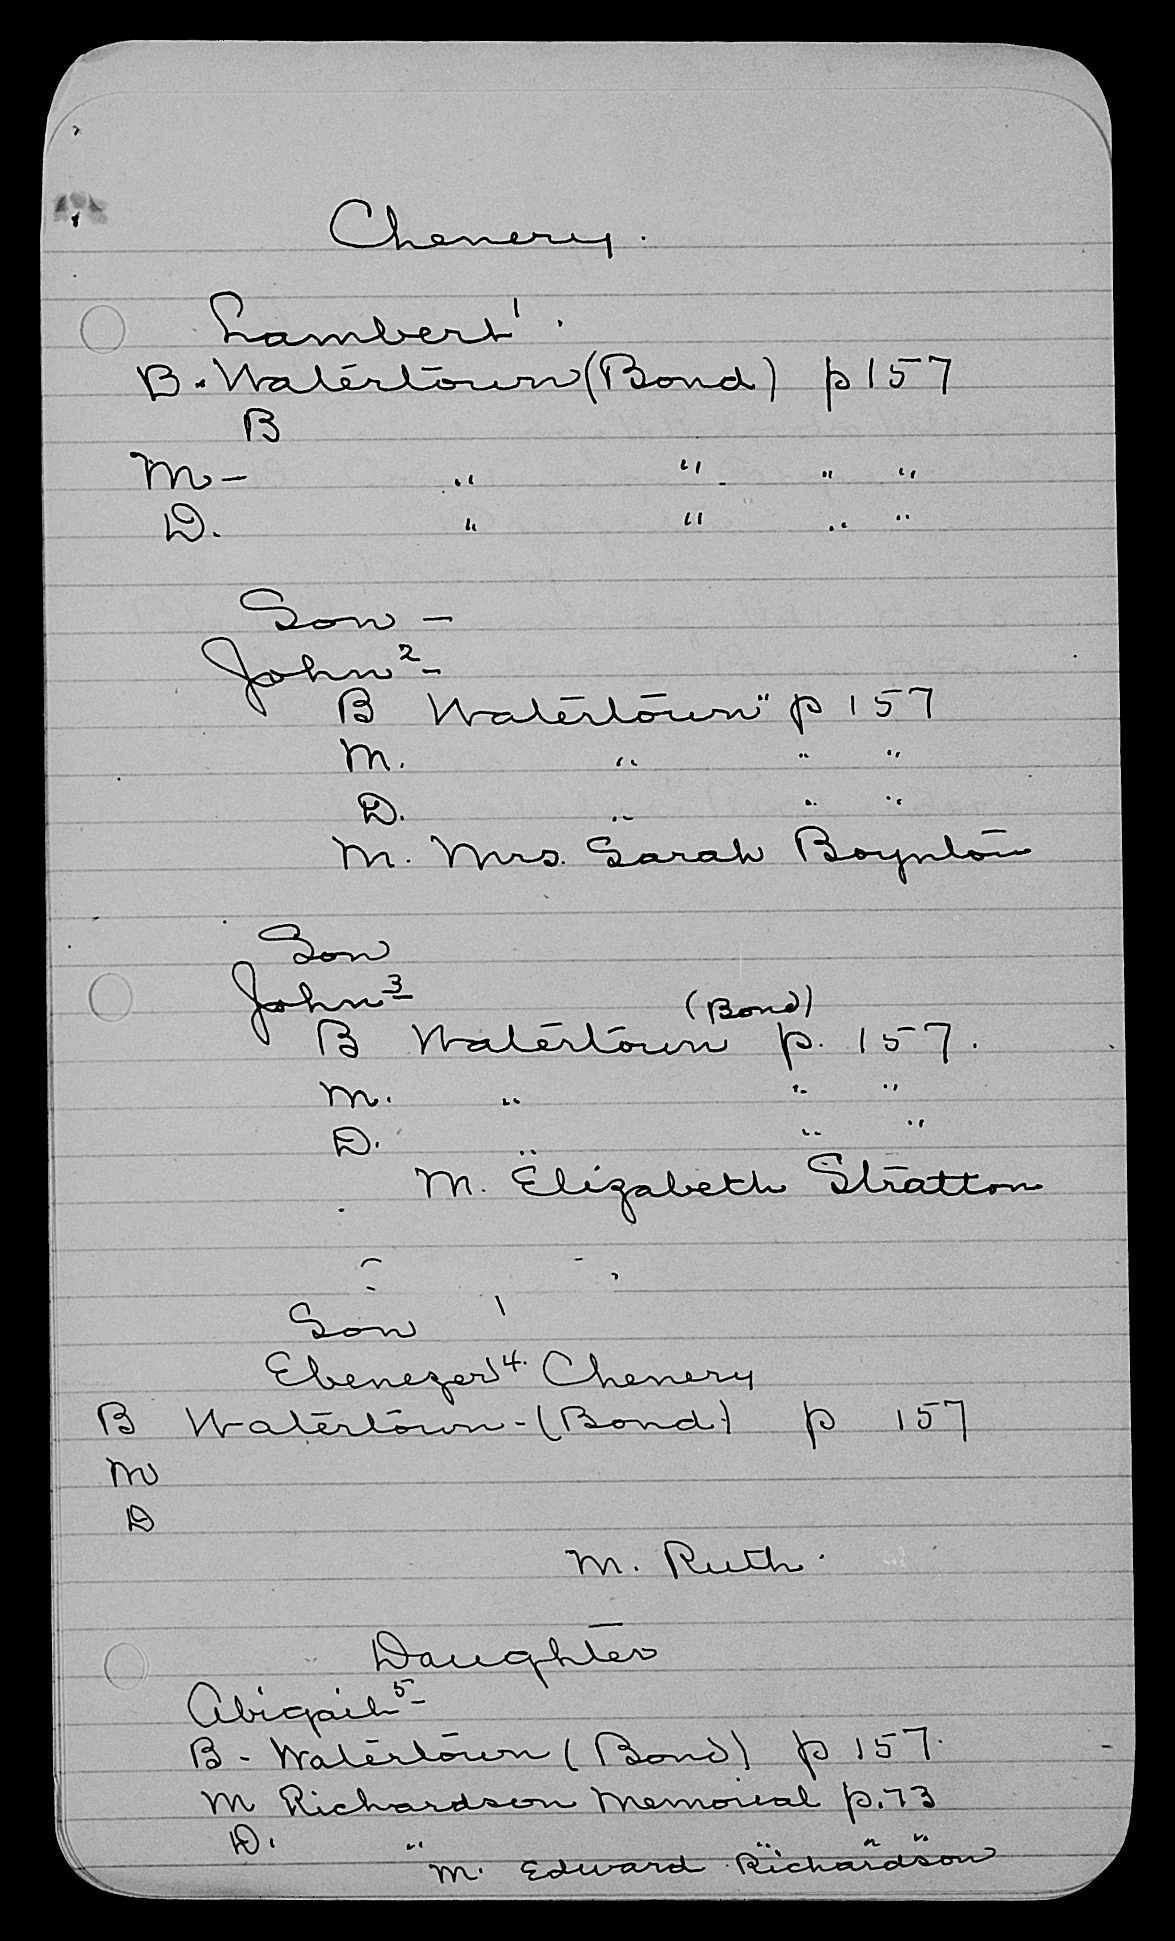 Chenery.
Lambert 1.
B. Watertown (Bond) p 157
B
M - " " " "
D. " " " "
Son -
John 2 -
B Watertown " p 157
M. " " "
D. " " "
M. Mrs. Sarah Boynton
Son
John 3
(Bond)
B Watertown p. 157.
M. " " "
D. " " "
M. Elizabeth Stratton
Son
Ebenezer 4. Chenery
B Watertown - (Bond) p 157
M
D
M. Ruth.
Daughter
Abigail 5 -
B - Watertown (Bond) p 157.
M Richardson Memorial p. 73
D. " " " "
M. Edward Richardson